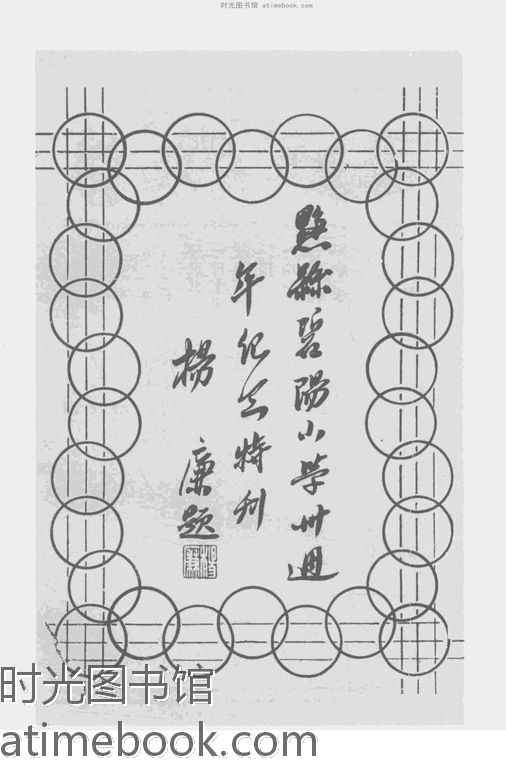 时光图书馆 atimebook.com
黟縣碧陽小學卅週
年纪念特刊
楊廉題
时光图书馆
atimebook.com